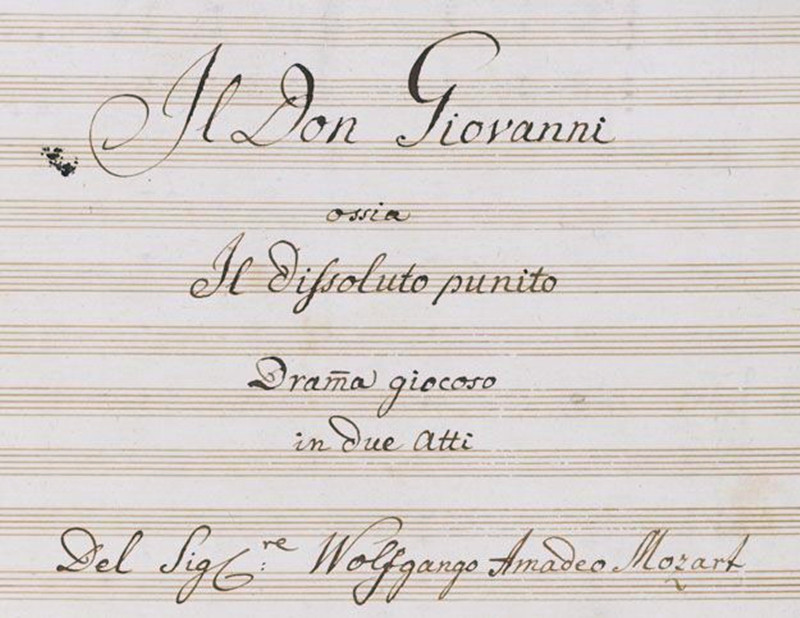 Il Don Giovanni
ossia
Il dissoluto punito
Dram̅a giocoso
in due Atti
Del Sig:re Wolfgango Amadeo Mozart